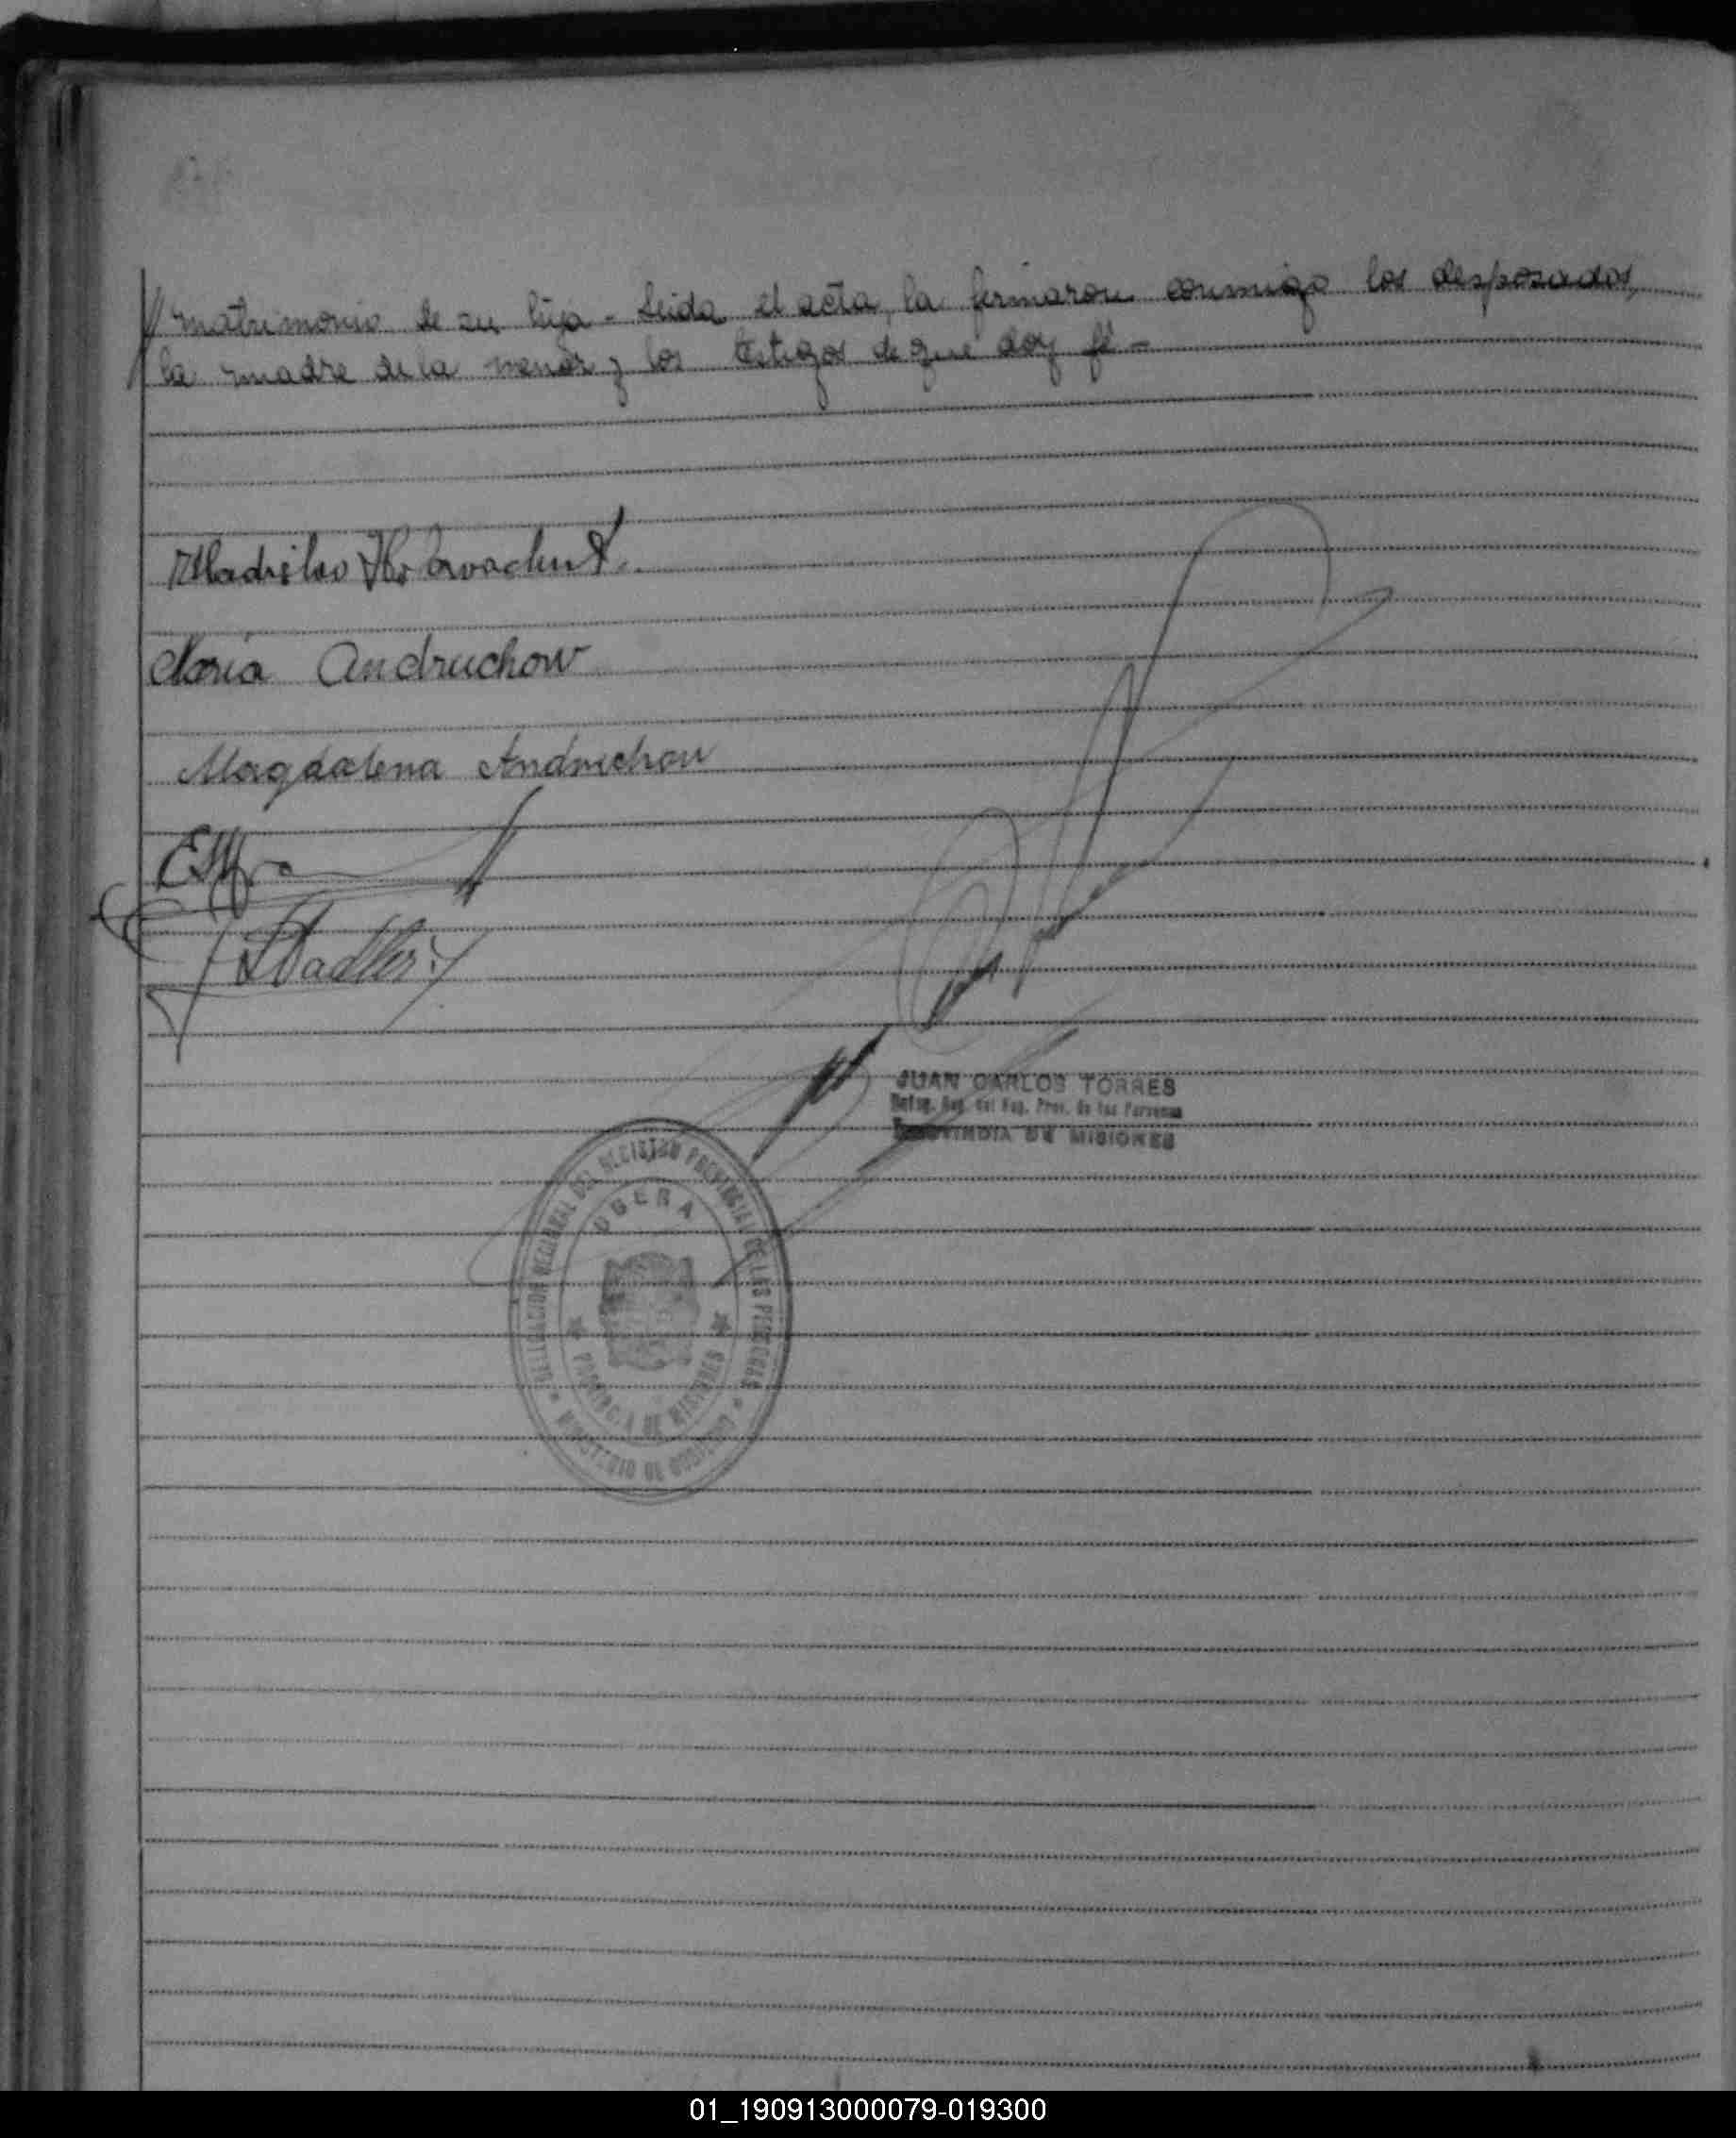 // matrimonio de su hija - Leida el acta, la firmaron conmigo los desposados,
la madre de la menor y los testigos de que doy fé -
Maria Andruchow
Magdalena Andruchow
JUAN CARLOS TORRES
Deleg. Reg. del Reg. Prov. de las Personas
PROVINCIA DE MISIONES
DELEGACION REGIONAL DEL REGISTRO PROVINCIAL DE LAS PERSONAS
OBERA
PROVINCIA DE MISIONES
MINISTERIO DE GOBIERNO
01_190913000079-019300